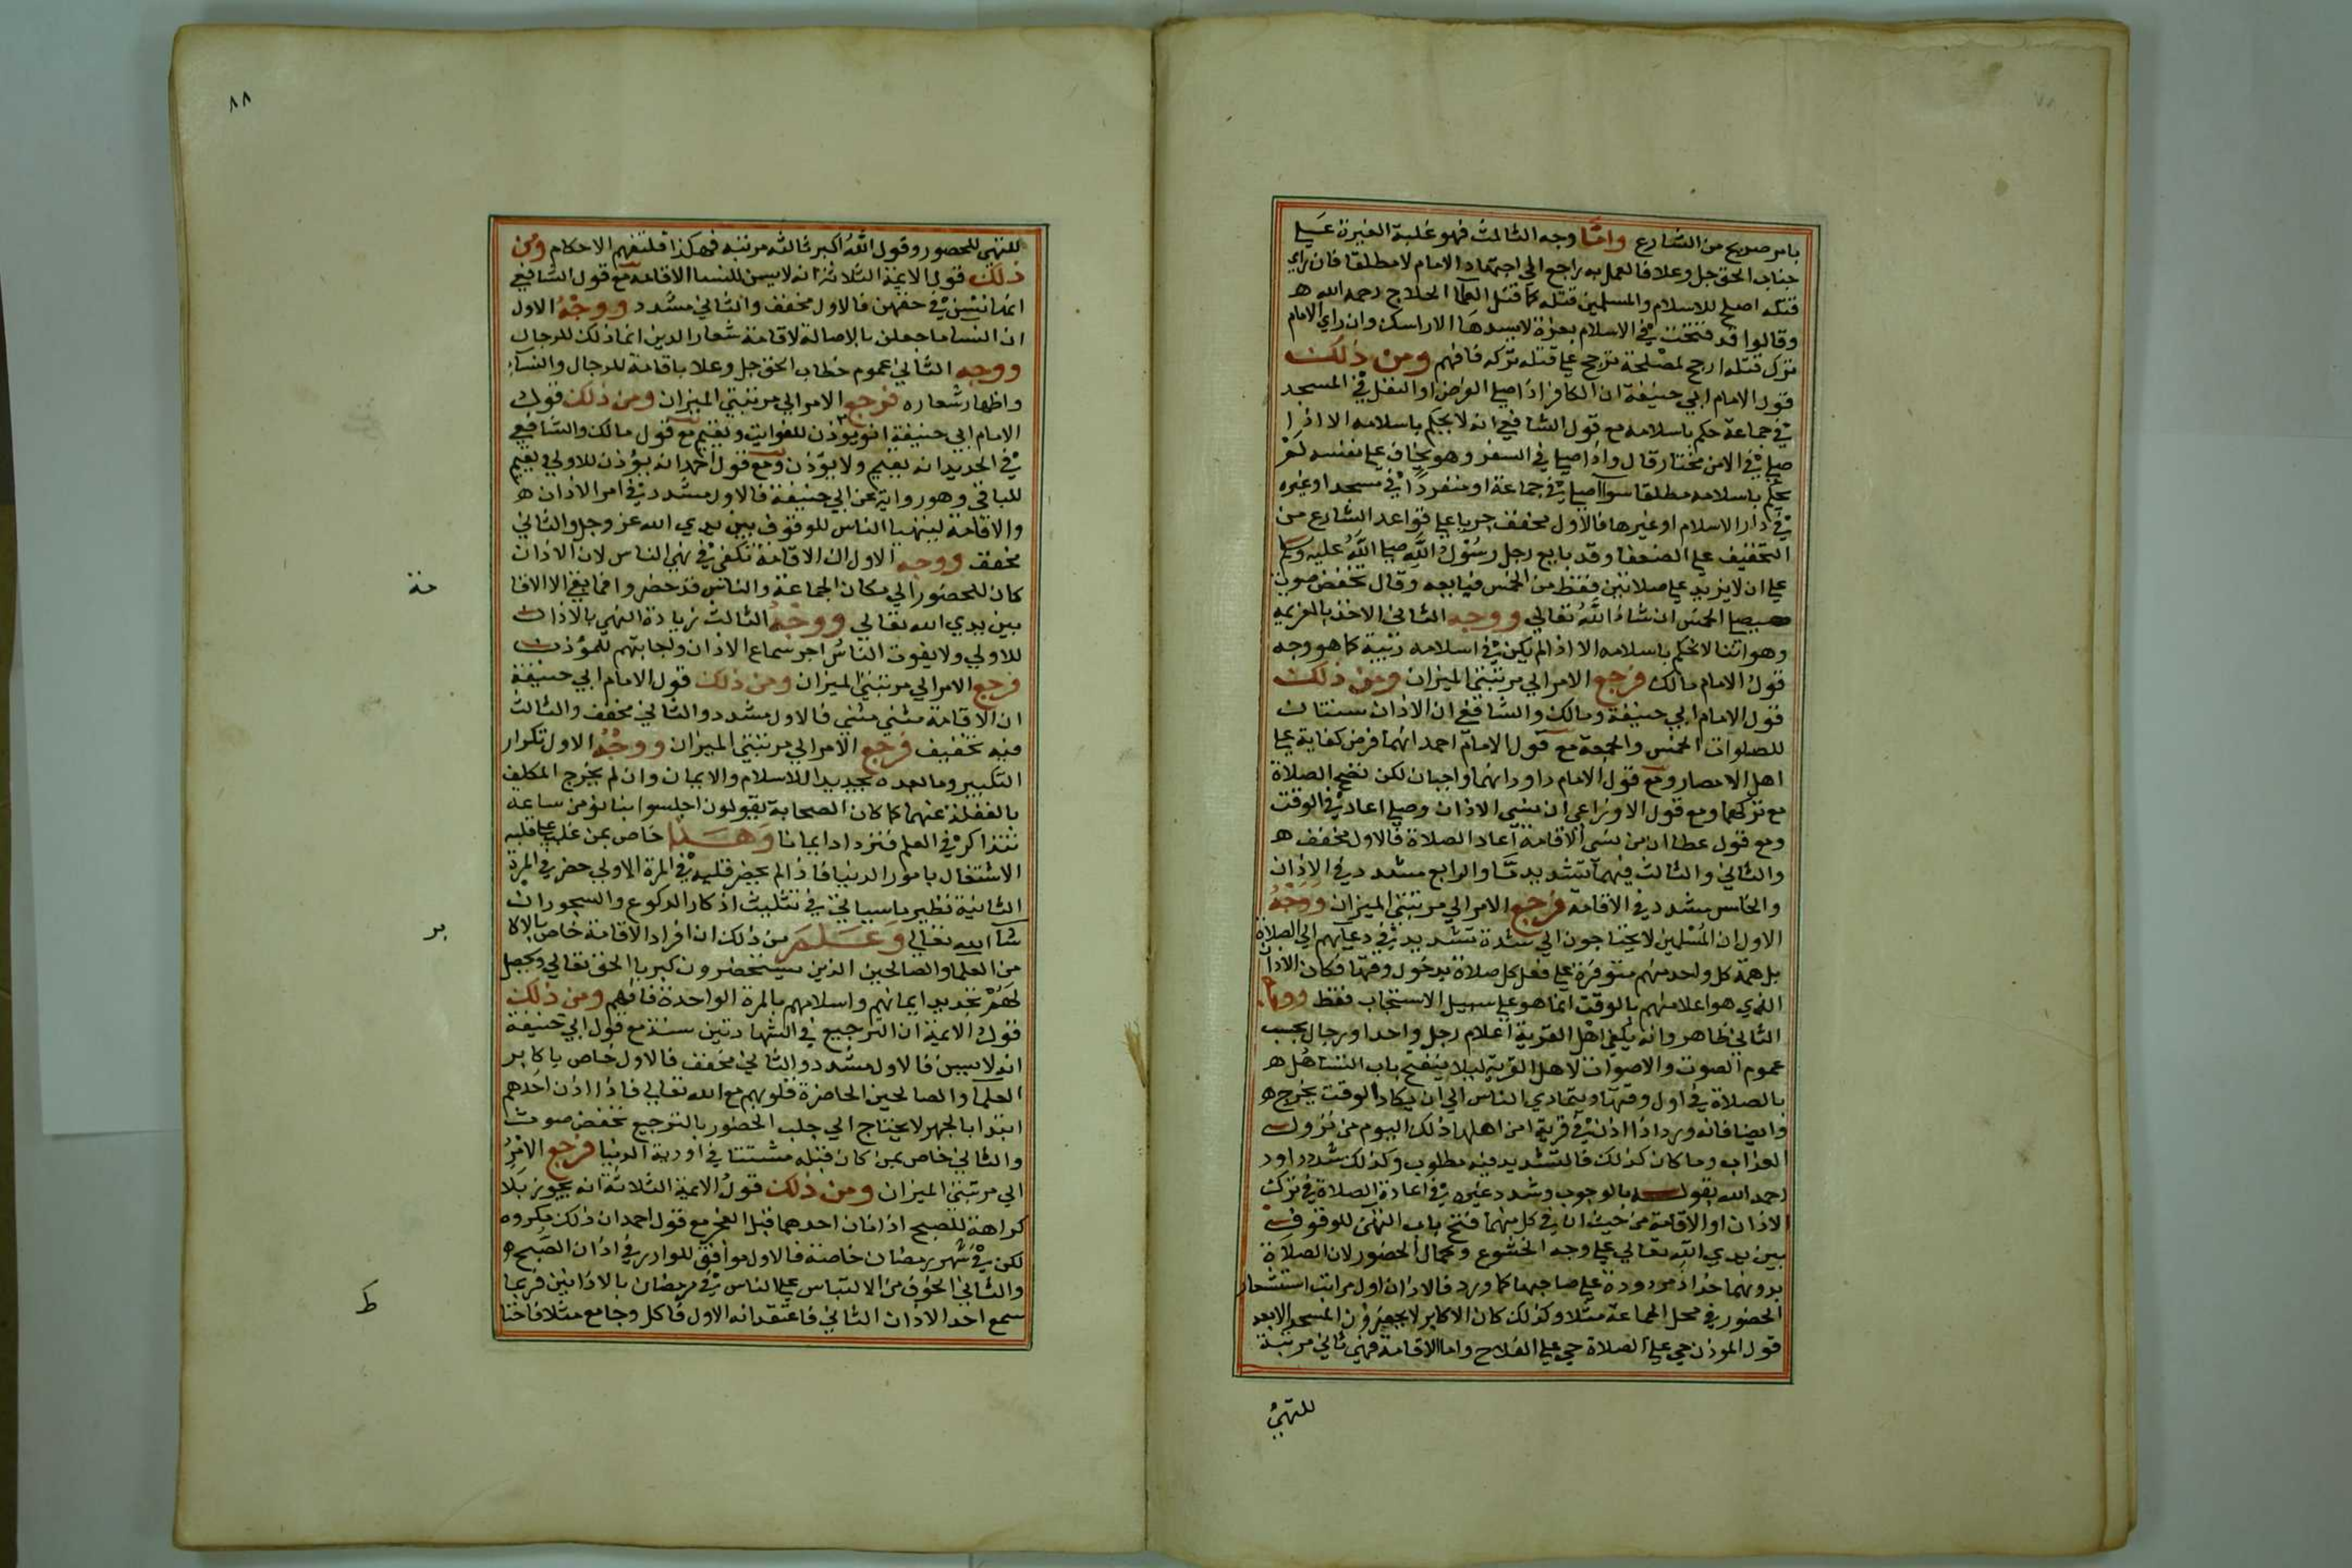 بامر صريح من الشارع واما وجه الثالث فهو غلبة الغيرة علي
جناب الحق جل وعلا فالعمل به راجع الي اجتهاد الامام لا مطلقا فان راي
قتله اصلح للاسلام والمسلمين قتله كما قتل العلما الحلاج رحمه الله ه
وقالوا قد فتحت في الاسلام بعزة لا يسدها الا راسك وان راي الامام
ترك قتله ارجح لمصلحة ترجح علي قتله تركه فافهم ومن ذلك
قول الامام ابي حنيفة ان الكافر اذا صلي الفرض او النفل في المسجد
في جماعة حكم باسلامه مع قول الشافعي انه لا يحكم باسلامه الا اذا
صلي في الامن مختارا قال واذا صلي في السفر وهو يخاف علي نفسه لم
يحكم باسلامه مطلقا سوا صلي في جماعة او منفردا في مسجد او غيره
في دار الاسلام او غيرها فالاول مخفف جريا علي قواعد الشارع من
التخفيف علي الضعفا وقد بايع رجل رسول الله صلي الله عليه وسلم
علي ان لا يزيد علي صلاتين فقط من الخمس فبايعه وقال بخفض صوت
سيصلي الخمس ان شا الله تعالي ووجه الثاني الاخذ بالعزيمه
وهو اننا لا نحكم باسلامه الا اذا لم يكن في اسلامه ريبة كما هو وجه
قول الامام مالك فرجع الامر الي مرتبتي الميزان ومن ذلك
قول الامام ابي حنيفة ومالك والشافعي ان الاذان سنتان
للصلوات الخمس والجمعة مع قول الامام احمد انهما فرض كفاية علي
اهل الامصار ومع قول الامام داود انهما واجبان لكن تصح الصلاة
مع تركهما ومع قول الاوزاعي ان نسي الاذان وصلي اعاد في الوقت
ومع قول عطا ان من نسي الاقامة اعاد الصلاة فالاول مخفف ه
والثاني والثالث فيهما تشديد ما والرابع مشدد في الاذان
والخامس مشدد في الاقامة فرجع الامر الي مرتبتي الميزان ووجه
الاول ان المسلمين لا يحتاجون الي شدة تشديد في دعايهم الي الصلاة
بل همة كل واحد منهم متوفرة علي فعل كل صلاة بدخول وقتها فكان الاذان
الذي هو اعلامهم بالوقت انما هو علي سبيل الاستحباب فقط ووجه
الثاني ظاهر وانه يكفي اهل القرية اعلام رجل واحد او رجال بحسب
عموم الصوت والاصوات لاهل القرية ليلا ينفتح باب التساهل ه
بالصلاة في اول وقتها ويتمادي الناس الي ان يكاد الوقت يخرج ه
وايضا فانه ورد اذا اذن في قرية امن اهلها ذلك اليوم من نزول
العذاب وما كان كذلك فالتشديد فيه مطلوب وكذلك شدد داود
رحمه الله بقوله بالوجوب وشدد غيره في اعادة الصلاة في ترك
الاذان او الاقامة من حيث ان في كل منهما فتح باب التهئ للوقوف
بين يدي الله تعالي علي وجه الخشوع وكمال الحضور لان الصلاة
بدونهما خداج مردودة علي صاحبها كما ورد فالاذان اول مراتب استشعار
الحضور في محل الجماعة مثلا وكذلك كان الاكابر لا يجهزون المسجد الا بعد
قول الموذن حي علي الصلاة حي علي الفلاح واما الاقامة فهي ثاني مرتبة
للتهئ
٨٨
للتهي للحضور وقول الله اكبر ثالثه مرتبه فهكذا فلتفهم الاحكام ومن
ذلك قول الايمة الثلاثة انه لا يسن للنسا الاقامه مع قول الشافعي
انها تسن في حقهن فالاول مخفف والثاني مشدد ووجه الاول
ان النسا ما جعلن بالاصالة لاقامة شعار الدين انما ذلك للرجال
ووجه الثاني عموم خطاب الحق جل وعلا باقامة للرجال والنسا
واظهار شعاره فرجع الامر الي مرتبتي الميزان ومن ذلك قول
الامام ابي حنيفة انه يوذن للفوايت ويقيم مع قول مالك والشافعي
في الجديد انه يقيم ولا يوذن ومع قول احمد انه يؤذن للاولي ويقيم
للباقي وهو رواية عن ابي حنيفة فالاول مشدد في امر الاذان ه
والاقامة ليتهيا الناس للوقوف بين يدي الله عز وجل والثاني
مخفف ووجه الاول ان الاقامة تكفي في تهي الناس لان الاذان
كان للحضور الي مكان الجماعة والناس قد حضروا فما بقي الا الاقا
مة
بين يدي الله تعالي ووجه الثالث زيادة التهي بالاذان
للاولي ولا يفوت الناس اجر سماع الاذان واجابتهم للموذن
فرجع الامر الي مرتبتي الميزان ومن ذلك قول الامام ابي حنيفة
ان الاقامة مثني مثني فالاول مشدد والثاني مخفف والثالث
فيه تخفيف فرجع الامر الي مرتبتي الميزان ووجه الاول تكرار
التكبير وما بعده تجديدا للاسلام والايمان وان لم يخرج المكلف
بالغفلة عنهما كما كان الصحابة يقولون اجلسوا بنا نؤمن ساعة
نتذاكر في العلم فنزداد ايمانا وهذا خاص بمن غلب علي قلبه
الاشتغال بامور الدنيا فاذا لم يحضر قلبه في المرة الاولي حضر في المرة
الثانية نظير ما سياتي في تثليث اذكار الركوع والسجود ان
شا الله تعالي وعلم من ذلك ان افراد الاقامة خاص بالاكا
بر
من العلما والصالحين الذين يستحضرون كبريا الحق تعالي ويحصل
لهم تجديد ايمانهم واسلامهم بالمرة الواحدة فافهم ومن ذلك
قول الايمة ان الترجيع في الشهادتين سنة مع قول ابي حنيفة
انه لا يسن فالاول مشدد والثاني مخفف فالاول خاص باكابر
العلما والصالحين الحاضرة قلوبهم مع الله تعالي فاذا اذن احدهم
ابتدا بالجهر لا يحتاج الي جلب الحضور بالترجيع بخفض صوت
والثاني خاص بمن كان قبله مشتتا في اودية الدنيا فرجع الامر
الي مرتبتي الميزان ومن ذلك قول الايمة الثلاثة انه يجوز بلا
كراهة للصبح اذانان احدهما قبل الفجر مع قول احمد ان ذلك مكروه
لكن في شهر رمضان خاصة فالاول موافق للوارد في اذان الصبح ه
والثاني الخوف من الالتباس علي الناس في رمضان بالاذانين فربما
سمع احد الاذان الثاني فاعتقد انه الاول فاكل وجامع مثلا فاختا
ط